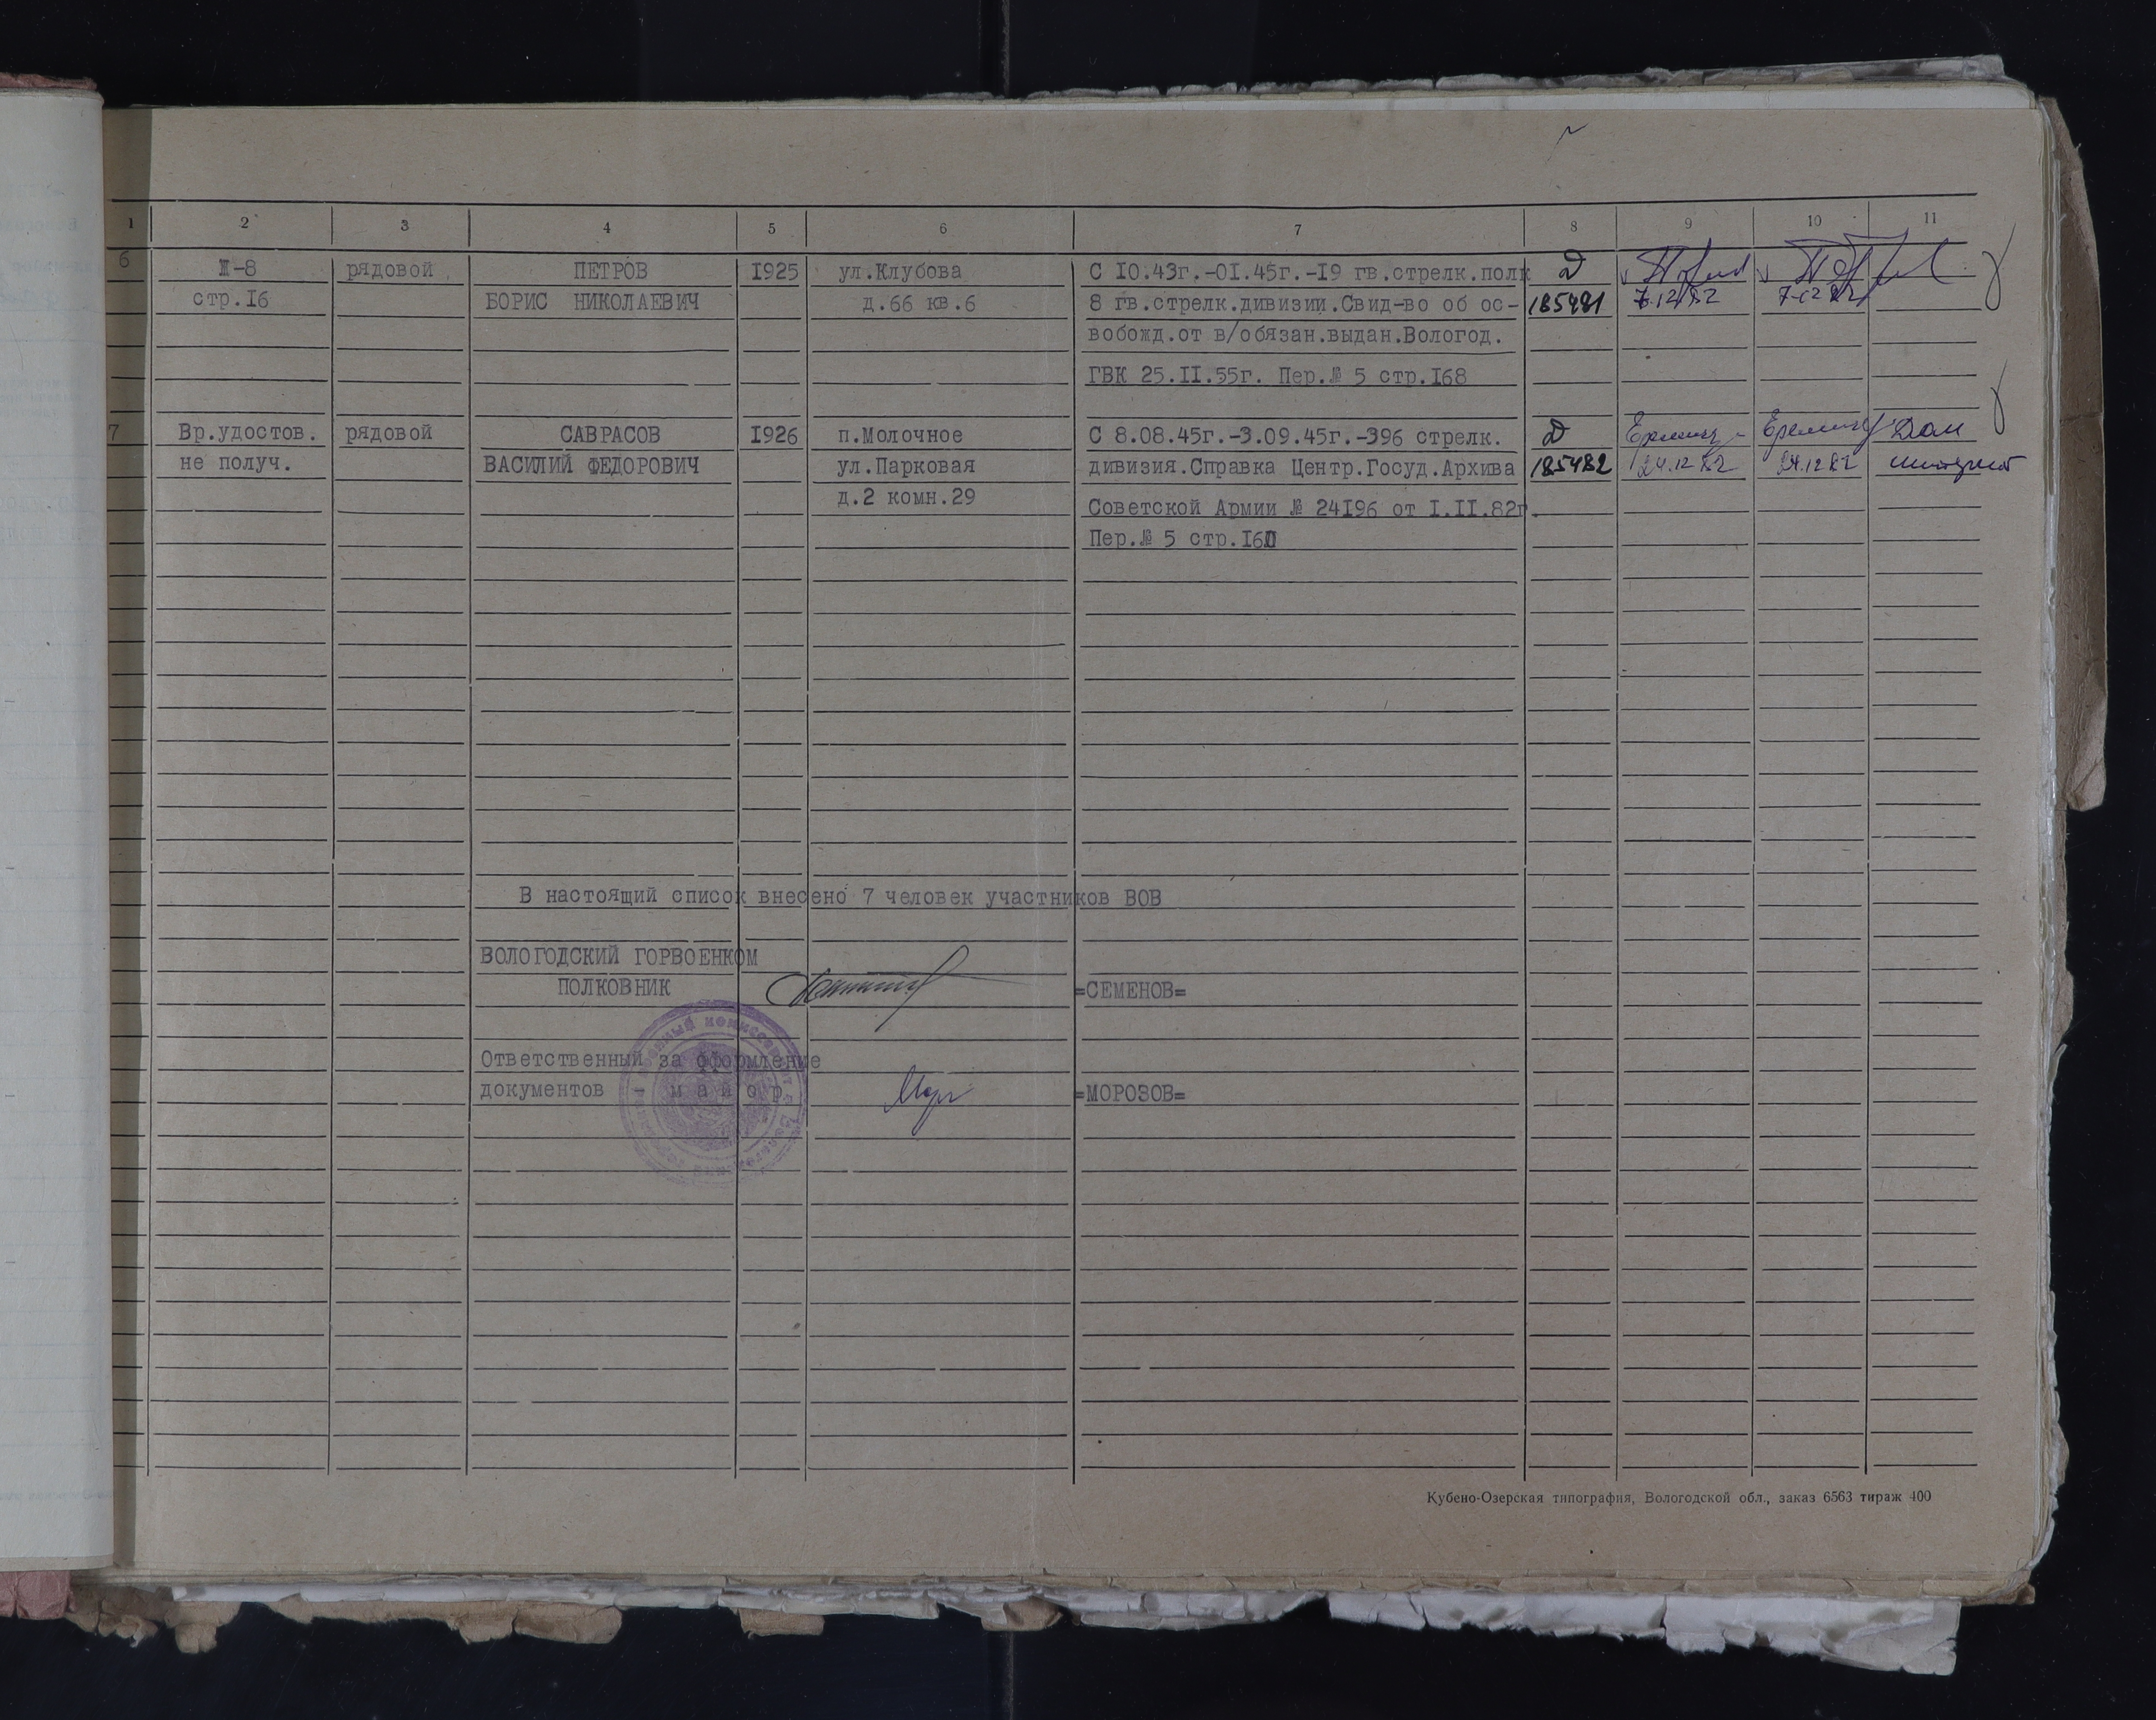 1 2 3 4 5 6 7 8 9 10 11
6 Ш-8 рядовой ПЕТРОВ 1925 ул.Клубова С 10.43г.-01.45г.-19 гв.стрелк.полк Д
стр.16 БОРИС НИКОЛАЕВИЧ д.66 кв.6 8 гв.стрелк.дивизии.Свид-во об ос- 185481 7.12.82 7.12.82
вобожд.от в/обязан.выдан.Вологод.
ГВК 25.11.55г. Пер.№ 5 стр.168
7 Вр.удостов. рядовой САВРАСОВ 1926 п.Молочное С 8.08.45г.-3.09.45г.-396 стрелк. Д
не получ. ВАСИЛИЙ ФЕДОРОВИЧ ул.Парковая дивизия.Справка Центр.Госуд.Архива 185482 24.12.82 24.12.82
д.2 комн.29 Советской Армии № 24196 от 1.11.82г.
Пер.№ 5 стр.160
В настоящий список внесено 7 человек участников ВОВ
ВОЛОГОДСКИЙ ГОРВОЕНКОМ
ПОЛКОВНИК =СЕМЕНОВ=
Ответственный за оформление
документов - майор =МОРОЗОВ=
Кубено-Озерская типография, Вологодской обл., заказ 6563 тираж 400